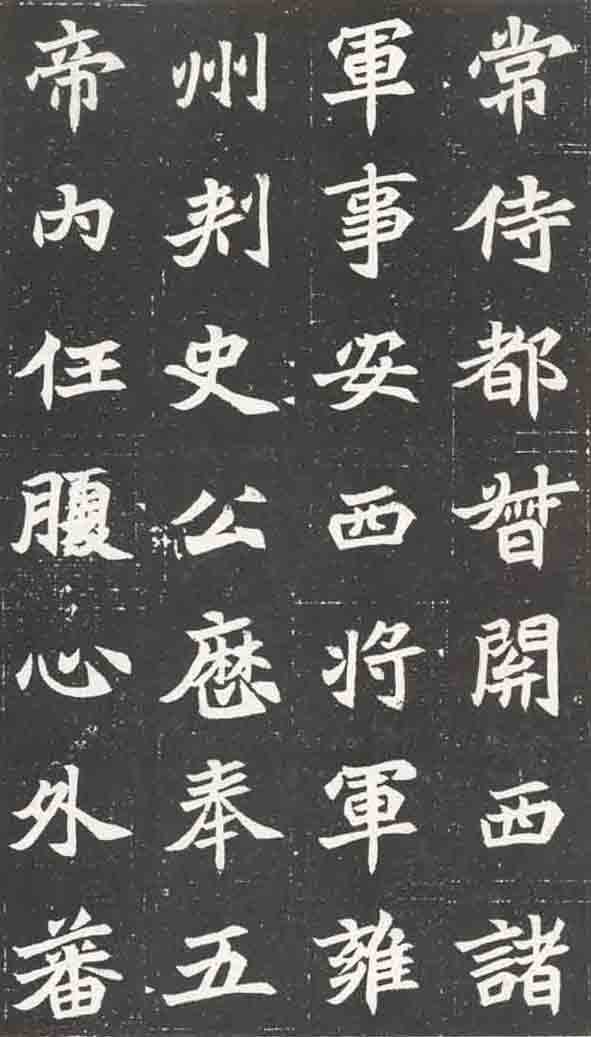 常侍都督開西諸
軍事安西将軍雍
州刾史公歷奉五
帝内任腹心外蕃